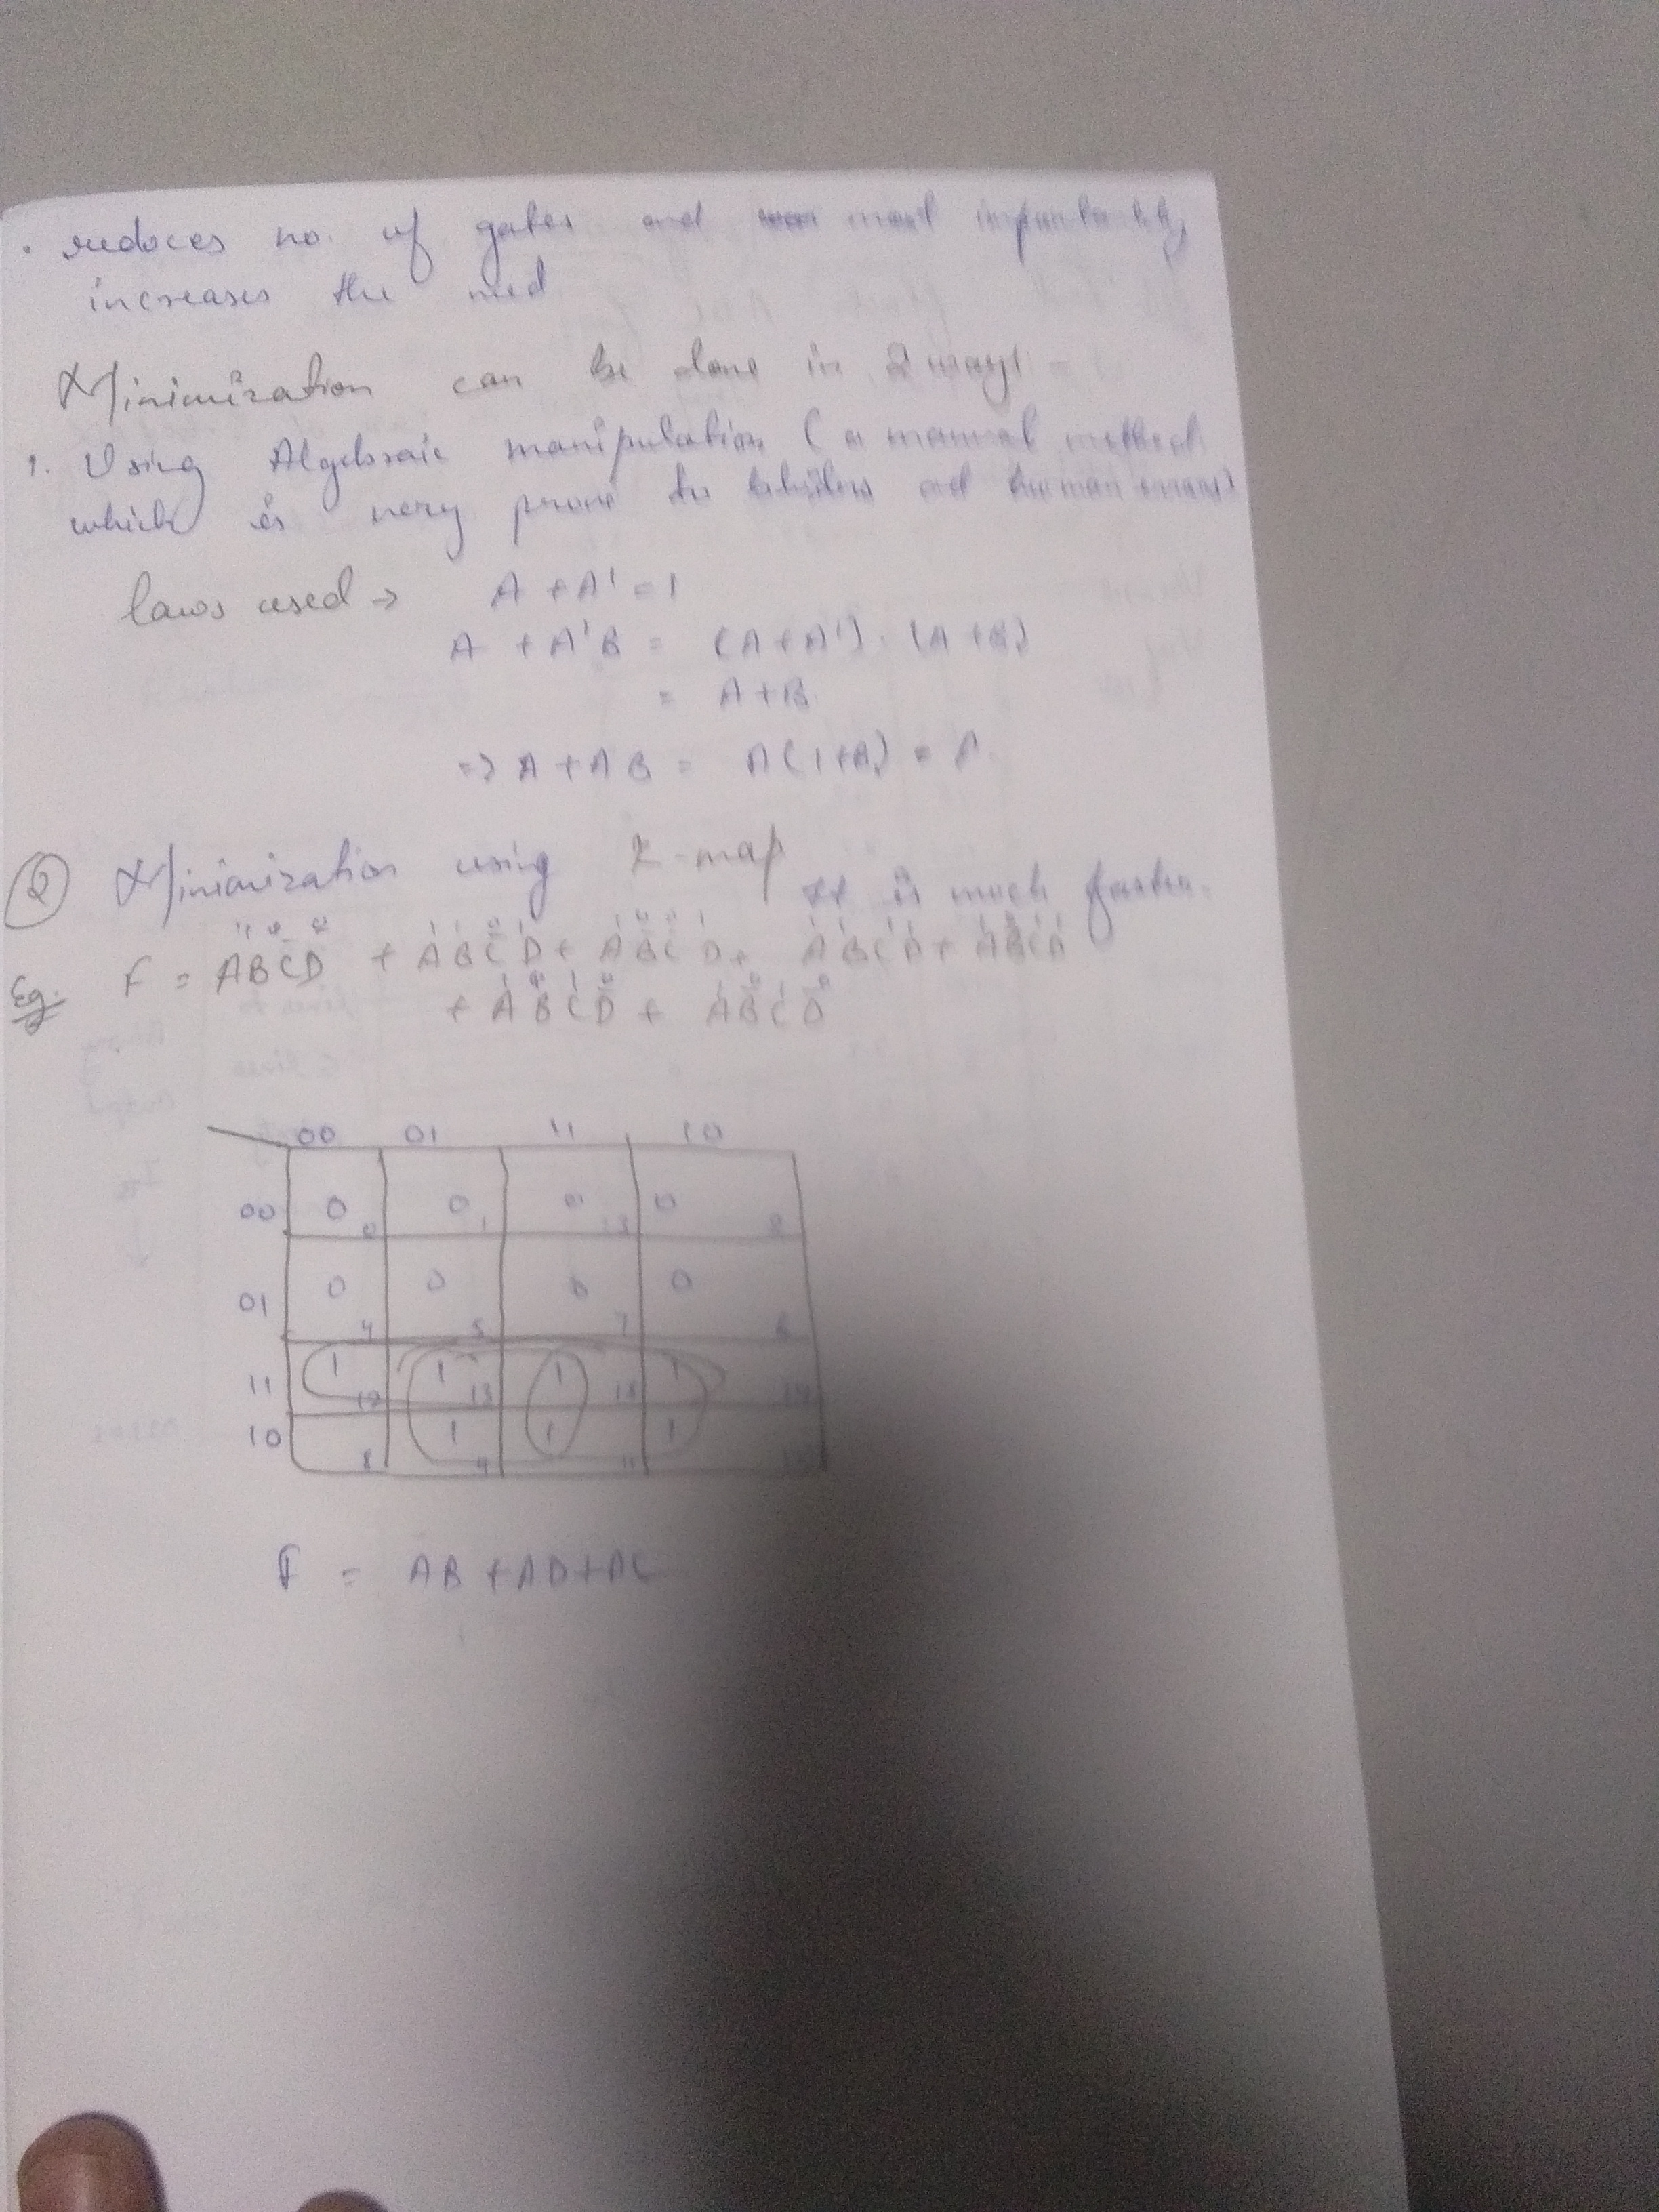 . reduces no. of gates and most importantly,
increases the
Minimization can be done in 2 ways =
1. Using Algebraic manipulation ( a manual method
which is very prone to and human errors)
laws used → A + A' = 1
A + A'B = (A + A') . (A + B)
= A + B
=> A + AB = A(1+B) = A
② Minimization using K-map It is much faster.
Eg. F =
00 01 11 10
00 0 0 0 1 0 3 0 2
01 0 4 0 5 0 7 0 6
11 1 12 1 13 1 15 1 14
10 8 1 9 1 11 1
F = AB + AD + AC